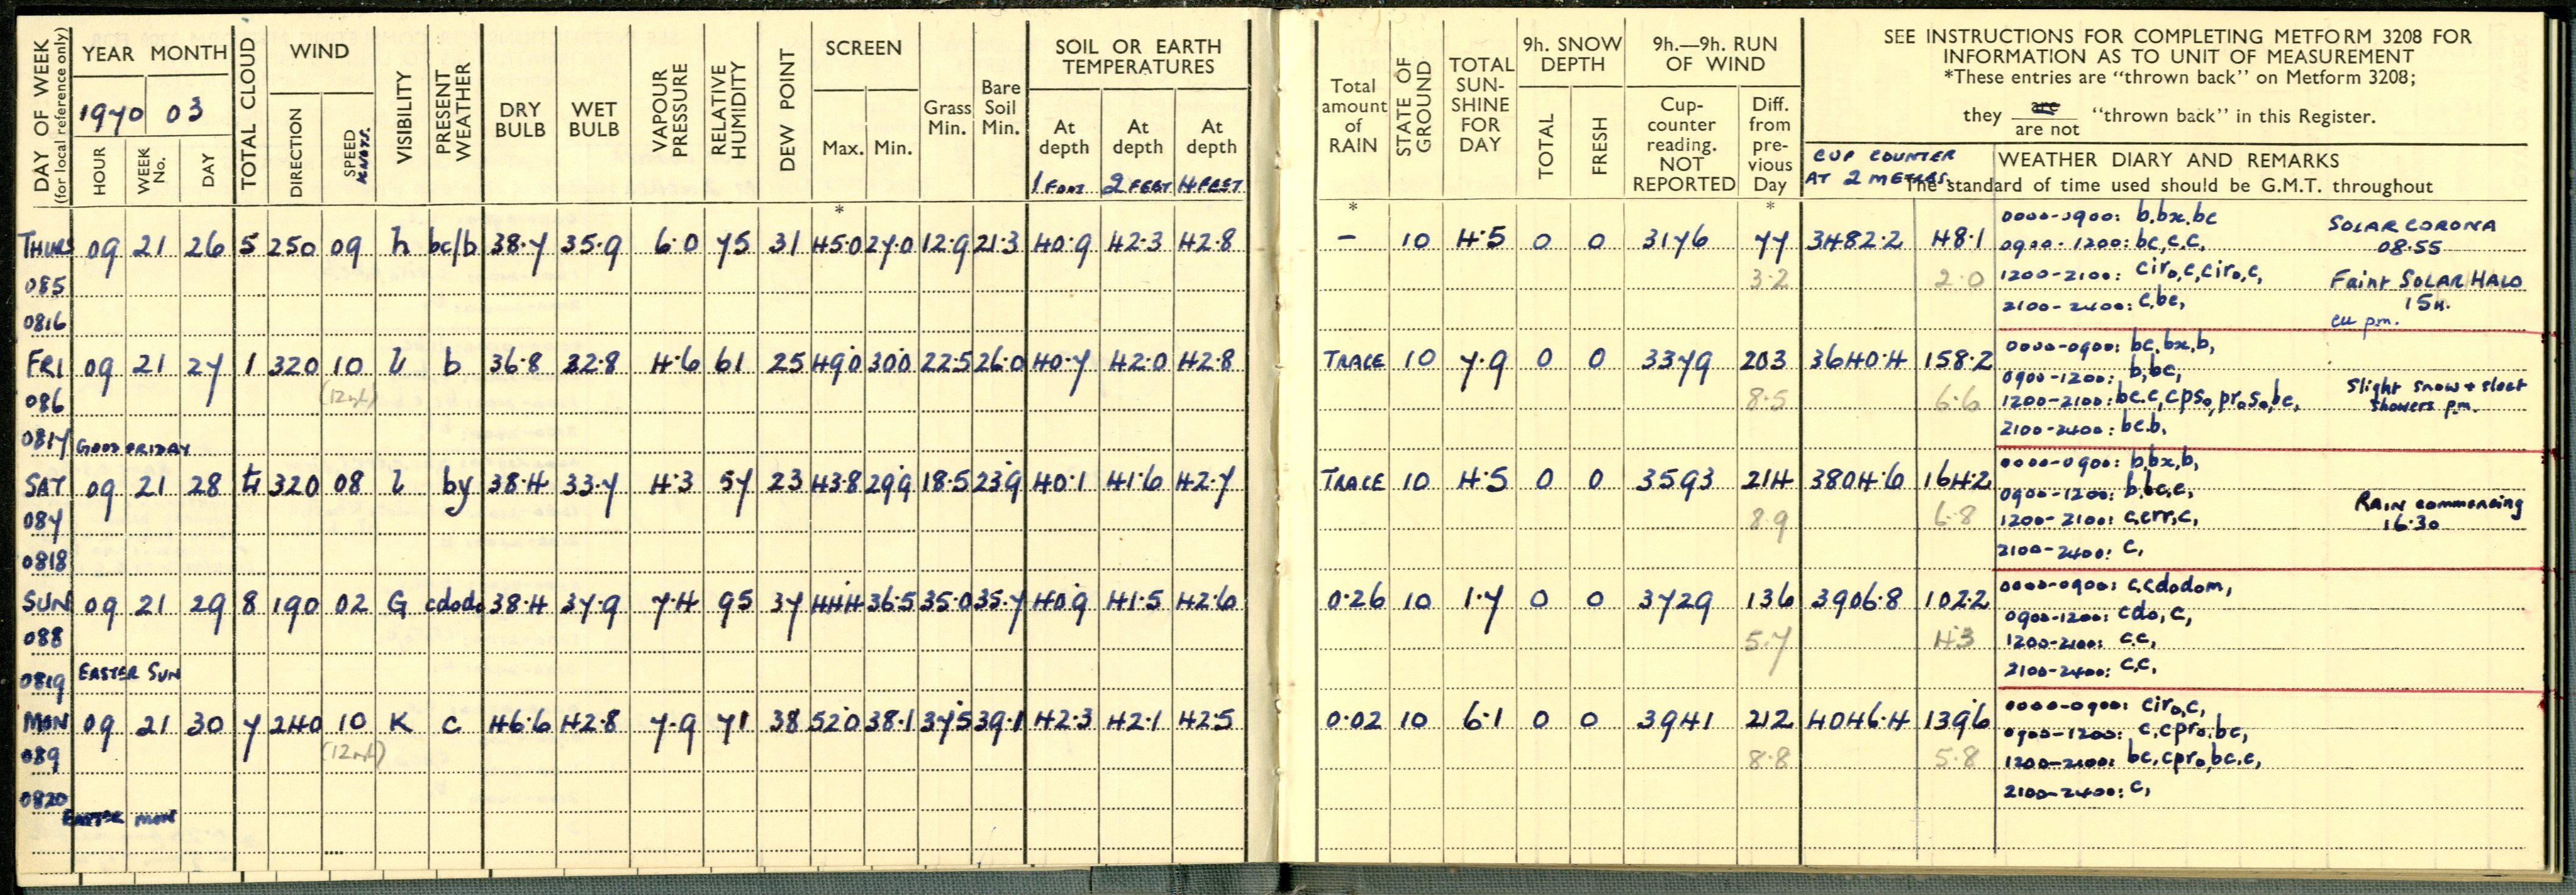 DAY OF WEEK
(for local reference only)
YEAR MONTH
1970 03
HOUR
WEEK No.
DAY
TOTAL CLOUD
WIND
DIRECTION
SPEED KNOTS.
VISIBILITY
PRESENT WEATHER
DRY BULB
WET BULB
VAPOUR PRESSURE
RELATIVE HUMIDITY
DEW POINT
SCREEN
Max. Min.
Grass Min.
Bare Soil Min.
SOIL OR EARTH TEMPERATURES
At depth 1 FOOT
At depth 2 FEET
At depth 4 FEET
*
THURS 09 21 26 5 250 09 h bc/b 38.7 35.9 6.0 75 31 45.0 27.0 12.9 21.3 40.9 42.3 42.8
085
0816
FRI 09 21 27 1 320 10 b 36.8 32.8 4.6 61 25 49.0 30.0 22.5 26.0 40.7 42.0 42.8
086
0817 GOOD FRIDAY
SAT 09 21 28 4 320 08 l by 38.4 33.7 4.3 57 23 43.8 29.9 18.5 23.9 40.1 41.6 42.7
087
0818
SUN 09 21 29 8 190 02 G cdodo 38.4 37.9 7.4 95 37 44.4 36.5 35.0 35.7 40.9 41.5 42.6
088
0819 EASTER SUN
MON 09 21 30 7 240 10 K c 46.6 42.8 7.9 71 38 52.0 38.1 37.5 39.1 42.3 42.1 42.5
089
0820
EASTER MON
Total amount of RAIN
STATE OF GROUND
TOTAL SUN-SHINE FOR DAY
9h. SNOW DEPTH
TOTAL
FRESH
9h.—9h. RUN OF WIND
Cup-counter reading. NOT REPORTED
Diff. from pre-vious Day
SEE INSTRUCTIONS FOR COMPLETING METFORM 3208 FOR
INFORMATION AS TO UNIT OF MEASUREMENT
*These entries are “thrown back” on Metform 3208;
they are
are not “thrown back” in this Register.
CUP COUNTER
AT 2 METRES.
WEATHER DIARY AND REMARKS
The standard of time used should be G.M.T. throughout
* *
- 10 4.5 0 0 3176 77 3482.2 48.1
3.2 2.0
0000-0900: b,bx,bc
0900-1200: bc,c,c,
1200-2100: ciro,c,ciro,c,
2100-2400: c,bc,
SOLAR CORONA
08.55
Faint SOLAR HALO
15h.
cu pm.
TRACE 10 7.9 0 0 3379 203 3640.4 158.2
8.5 6.6
0000-0900: bc,bx,b,
0900-1200: b,bc,
1200-2100: bc,c,cpso,proso,bc,
2100-2400: bc.b.
Slight snow + sleet
showers pm.
TRACE 10 4.5 0 0 3593 214 3804.6 164.2
8.9 6.8
0000-0900: b,bx,b,
0900-1200: b,bc,c,
1200-2100: c,crr,c,
2100-2400: c,
RAIN commencing
16.30
0.26 10 1.7 0 0 3729 136 3906.8 102.2
5.7 4.3
0000-0900: c,cdodom,
0900-1200: cdo,c,
1200-2100: c,c,
2100-2400: c,c,
0.02 10 6.1 0 0 3941 212 4046.4 139.6
8.8 5.8
0000-0900: ciro,c,
0900-1200: c,cpro,bc,
1200-2100: bc,cpro,bc,c,
2100-2400: c,